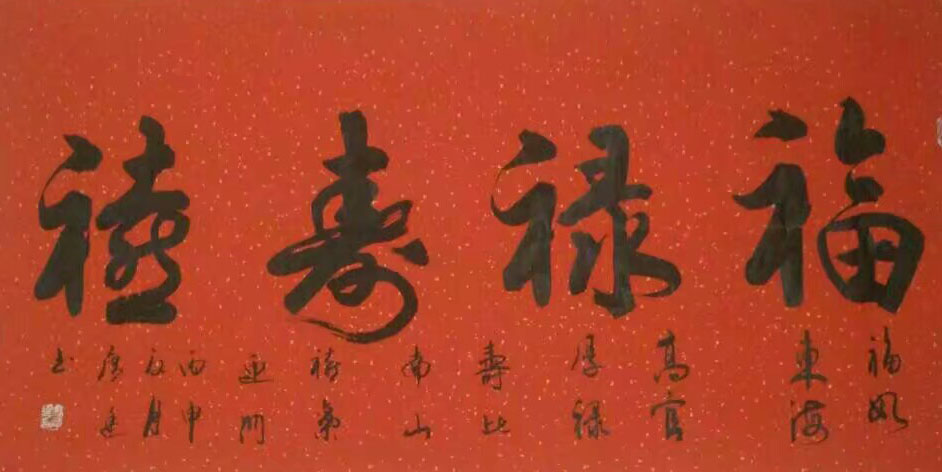 福禄寿禧
福如
東海
高官
厚禄
寿比
南山
禧氣
迎门
丙申
夏月
唐
书